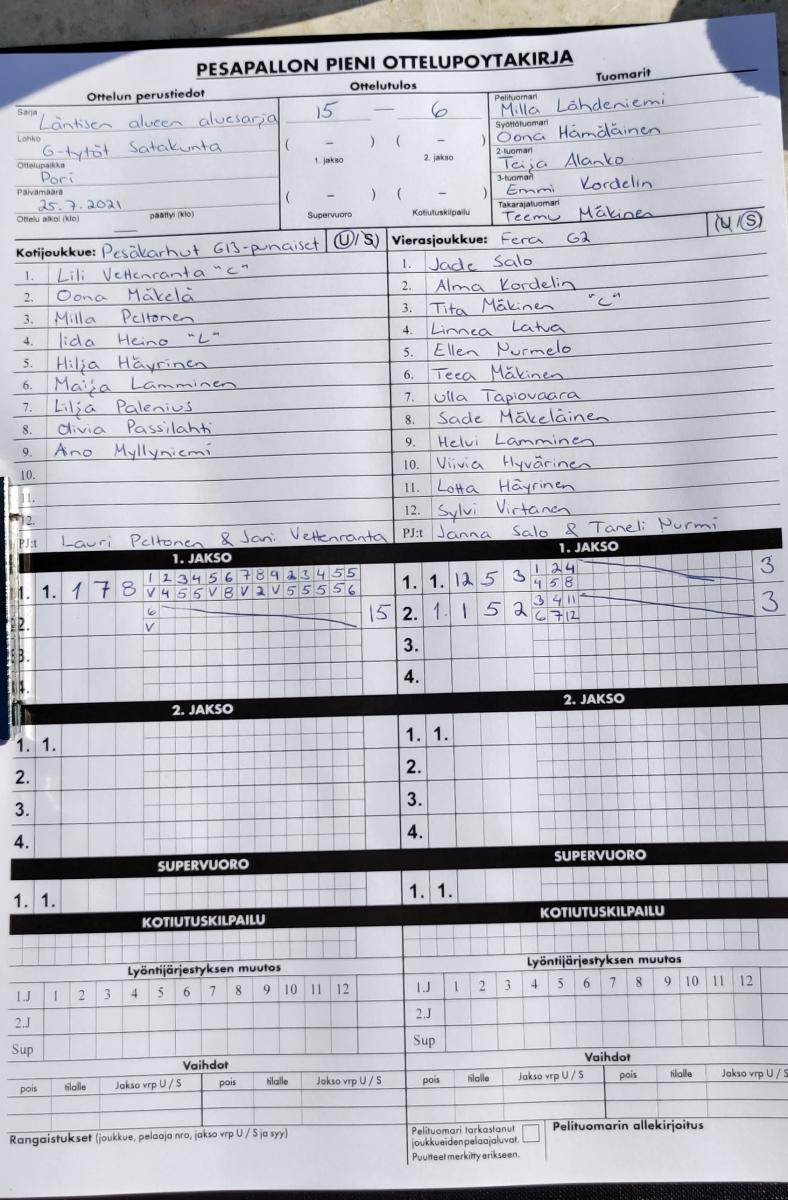 PESAPALLON PIENI OTTELUPOYTAKIRJA
Ottelun perustiedot
Sarja
Läntisen alueen aluesarja
Lohko
G-tytöt Satakunta
Ottelupaikka
Pori
Päivämäärä
25.7.2021
Ottelu alkoi (klo) päättyi (klo)
Ottelutulos
15 – 6
( – ) ( – )
1. jakso 2. jakso
( – ) ( – )
Supervuoro Kotiutuskilpailu
Tuomarit
Pelituomari
Milla Lähdeniemi
Syöttötuomari
Oona Hämäläinen
2-tuomari
Teija Alanko
3-tuomari
Emmi Kordelin
Takarajatuomari
Teemu Mäkinen
Kotijoukkue: Pesäkarhut G13-punaiset (U/S)
1. Lili Vettenranta "C"
2. Oona Mäkelä
3. Milla Peltonen
4. Iida Heino "L"
5. Hilja Häyrinen
6. Maija Lamminen
7. Lilja Palenius
8. Olivia Passilahti
9. Aino Myllyniemi
10.
11.
12.
PJ:t Lauri Peltonen & Jani Vettenranta
Vierasjoukkue: Fera G2 (U/S)
1. Jade Salo
2. Alma Kordelin
3. Tita Mäkinen "C"
4. Linnea Latva
5. Ellen Nurmelo
6. Teea Mäkinen
7. Ulla Tapiovaara
8. Sade Mäkeläinen
9. Helvi Lamminen
10. Viivia Hyvärinen
11. Lotta Häyrinen
12. Sylvi Virtanen
PJ:t Janna Salo & Taneli Nurmi
1. JAKSO
1 2 3 4 5 6 7 8 9 2 3 4 5 5
1. 1. 1 7 8 V 4 5 5 V 8 V 2 V 5 5 5 5 6
6
2. V 15
3.
4.
1. JAKSO
1 2 4 3
1. 1. 12 5 3 4 5 8
3 4 11 3
2. 1. 1 5 2 6 7 12
3.
4.
2. JAKSO
1. 1.
2.
3.
4.
2. JAKSO
1. 1.
2.
3.
4.
SUPERVUORO
1. 1.
SUPERVUORO
1. 1.
KOTIUTUSKILPAILU
KOTIUTUSKILPAILU
Lyöntijärjestyksen muutos
1.J 1 2 3 4 5 6 7 8 9 10 11 12
2.J
Sup
Lyöntijärjestyksen muutos
1.J 1 2 3 4 5 6 7 8 9 10 11 12
2.J
Sup
Vaihdot
pois tilalle Jakso vrp U / S pois tilalle Jakso vrp U / S
Vaihdot
pois tilalle Jakso vrp U / S pois tilalle Jakso vrp U / S
Rangaistukset (joukkue, pelaaja nro, jakso vrp U / S ja syy)
Pelituomari tarkastanut
joukkueidenpelaajaluvat.
Puutteet merkitty erikseen.
Pelituomarin allekirjoitus